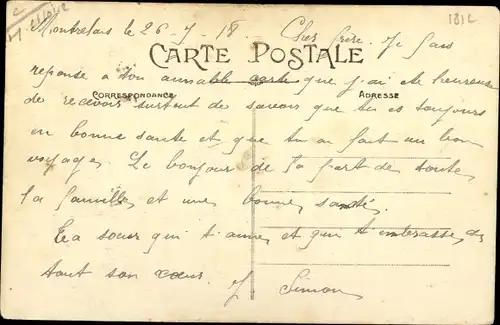 1812
Montrelais le 26-7-18. Cher frère. Je fais
CARTE POSTALE
réponse a ton aimable carte que j'ai été heureuse
CORRESPONDANCE ADRESSE
de recevoir surtout de savoir que tu es toujours
en bonne santé et que tu as fait un bon
voyage. Le bonjour de la part de toute
la famille et une bonne santé.
Ta sœur qui t'aime et que t'embrasse de
tout son cœur. J Simon